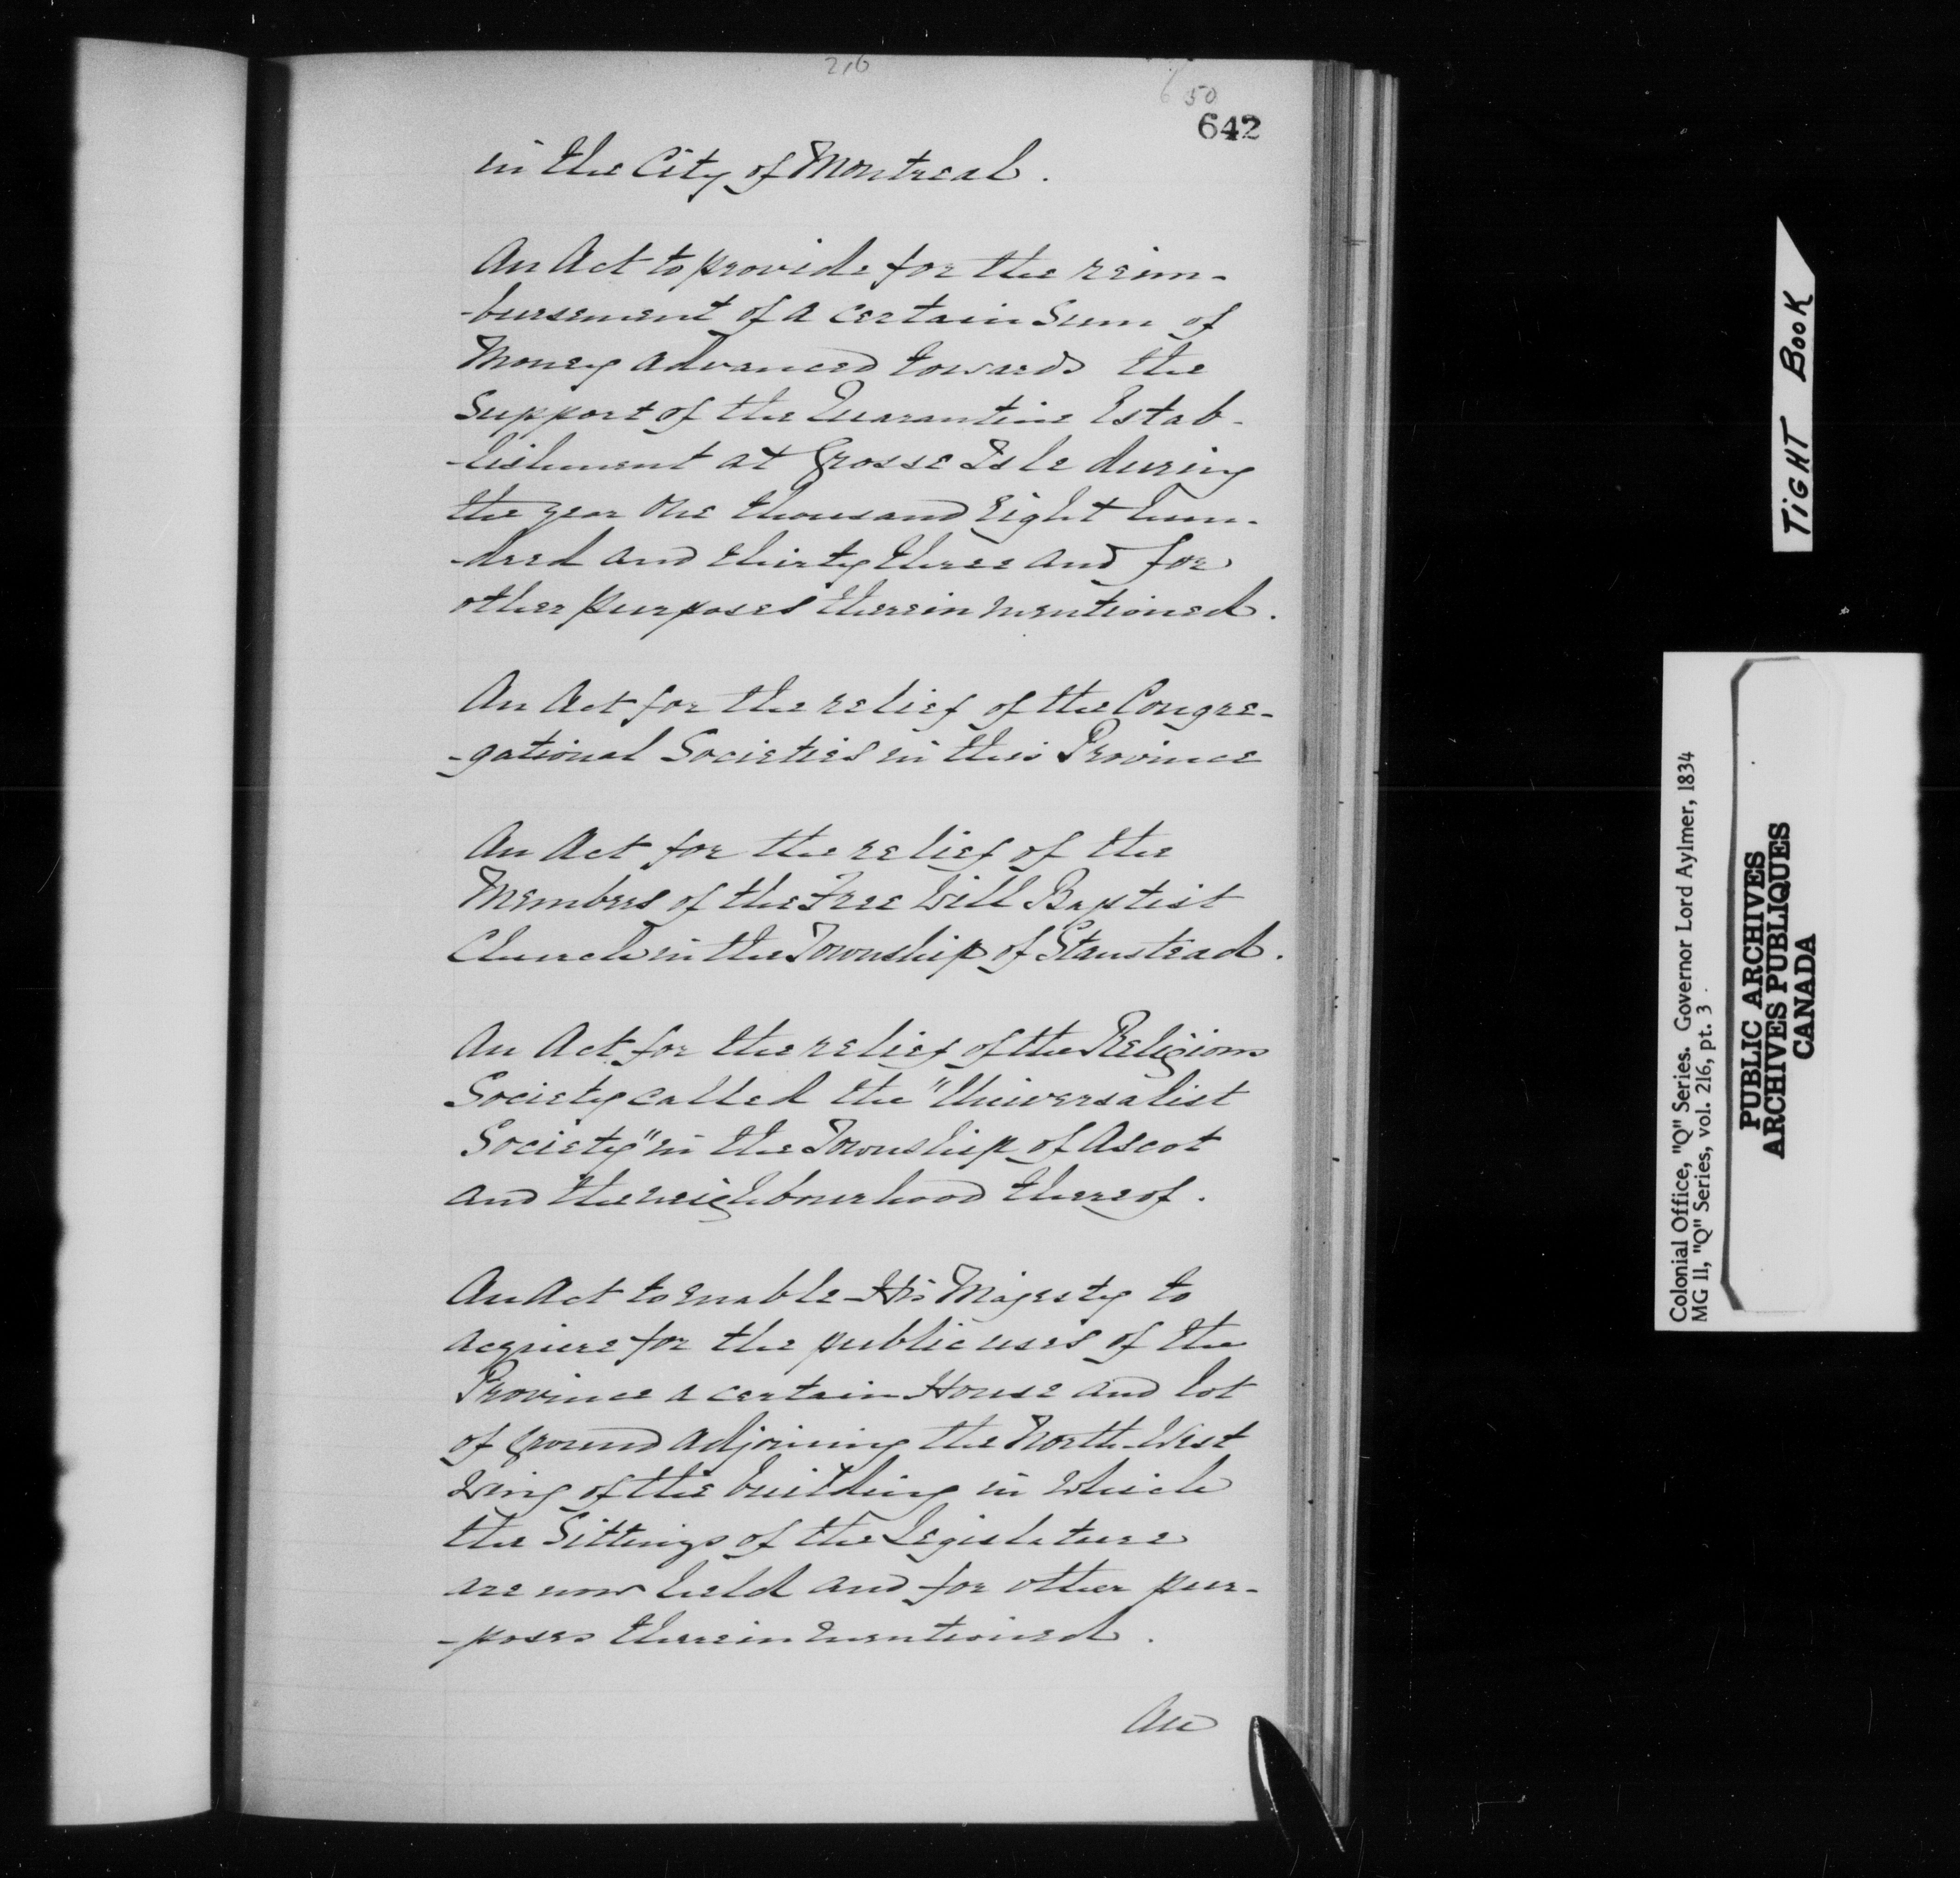 216
650
642
in the City of Montreal.
An Act to provide for the reim-
-bursement of a certain Sum of
Money advanced towards the
Support of the Quarantine Estab-
-lishment at Grosse Isle during
the year One thousand Eight hun-
-dred and thirty three and for
other purposes therein mentioned.
An Act for the relief of the Congre-
-gational Societies in this Province
An Act for the relief of the
Members of the Free Will Baptist
Church in the Township of Stanstead.
An Act for the relief of the Religious
Society called the "Universalist
Society" in the Township of Ascot
and the neighbourhood thereof.
An Act to enable His Majesty to
acquire for the public uses of the
Province a certain House and lot
of ground adjoining the North-West
Wing of the building in which
the Sittings of the Legislature
are now held and for other pur-
-poses therein mentioned.
An
TIGHT BOOK
Colonial Office, "Q" Series. Governor Lord Aylmer, 1834
MG 11, "Q" Series, vol. 216, pt. 3
PUBLIC ARCHIVES
ARCHIVES PUBLIQUES
CANADA